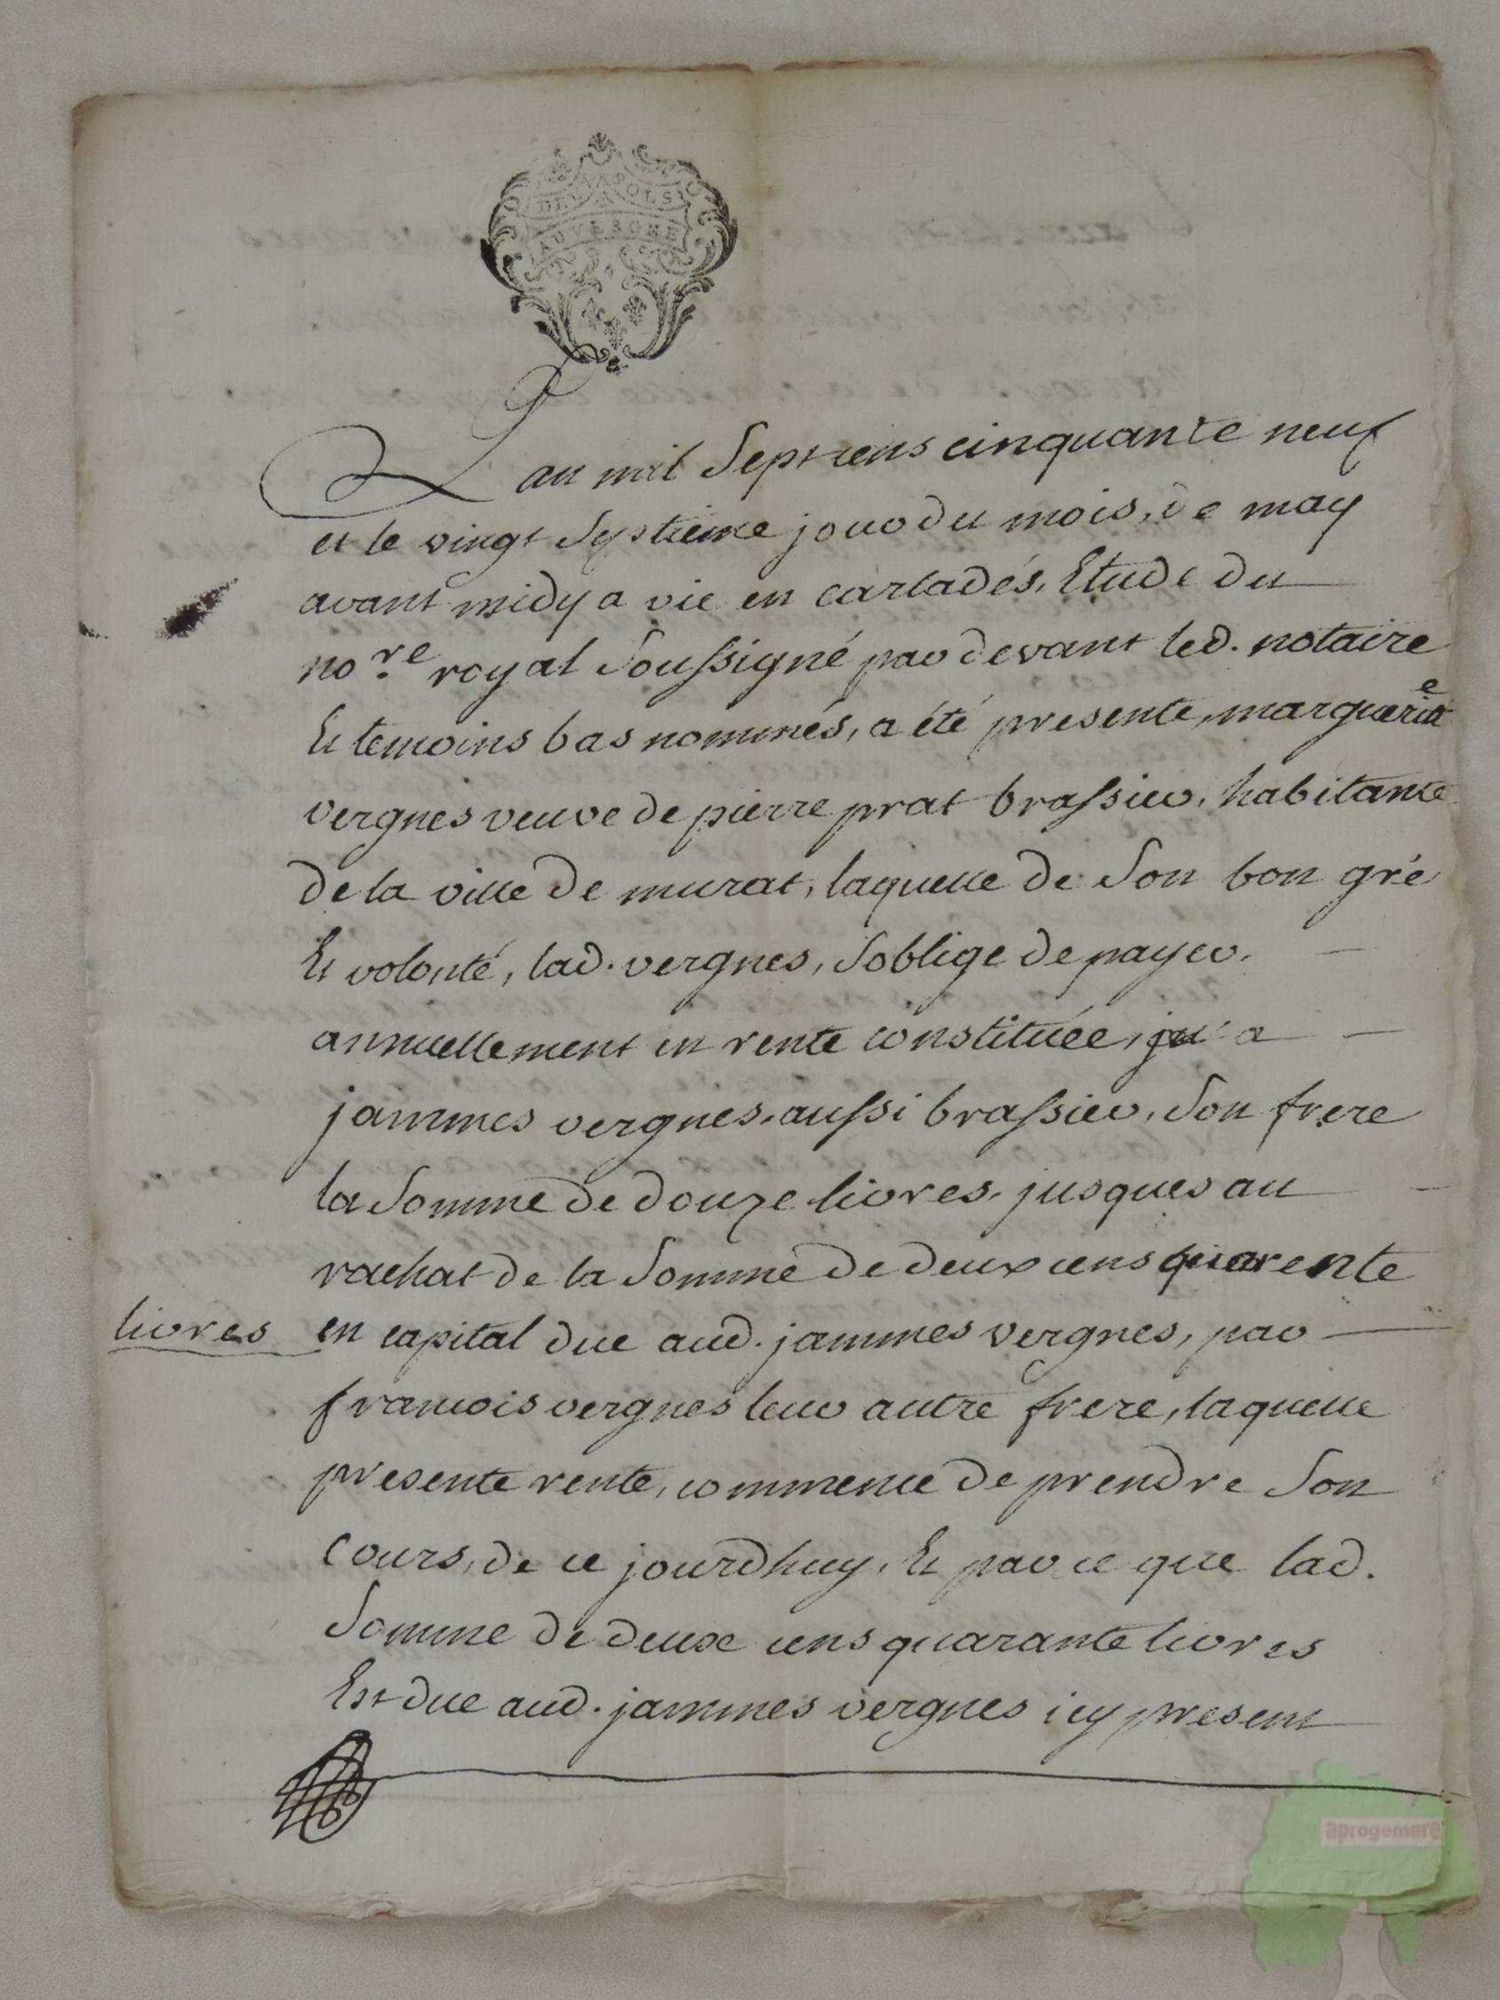 DEUX SOLS
AUVERGNE
L'an mil Sept cens cinquante neuf
et le vingt Septieme jour du mois, de may
avant midy a vic en carladés, Etude du
no.re royal Soussigné par devant led. notaire
Et temoins bas nommés, a été presente, marguerite
vergnes veuve de pierre prat brassier, habitante
de la ville de murat, laquelle de Son bon gré
Et volonté, lad. vergnes, S'oblige de payer.
annuellement en rente constituée, a
jammes vergnes, aussi brassier, Son frere
la Somme de douze livres, jusques au
rachat de la Somme de deux cens quarente
livres en capital due aud. jammes vergnes, par
francois vergnes leur autre frere, laquelle
presente rente, commence de prendre Son
cours, de ce jourdhuy, Et par ce que lad.
Somme de deux cens quarante livres
Est due aud. jammes vergnes icy present
aprogemere